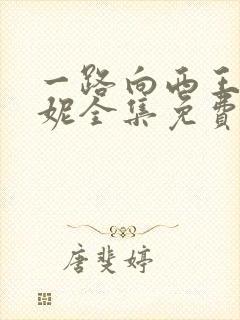 一路向西王
妮全集免费
唐斐婷